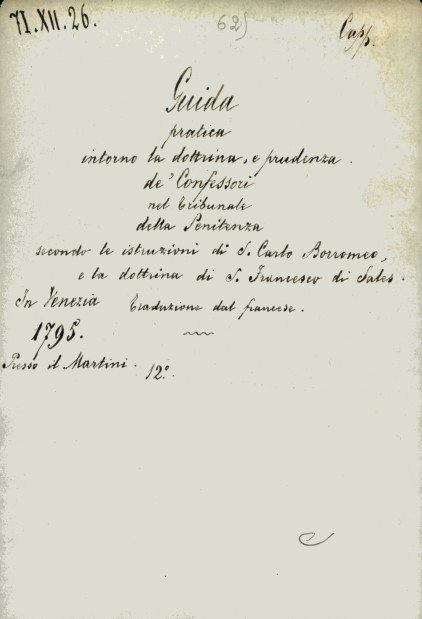 71.XII.26.
62)
Capp.
Guida
pratica
intorno la dottrina, e prudenza.
de' Confessori
nel tribunale
della Penitenza
secondo le istruzioni di S. Carlo Borromeo,
e la dottrina di S. Francesco di Sales.
In Venezia Traduzione dal francese.
1795.
Presso il Martini. 12º.